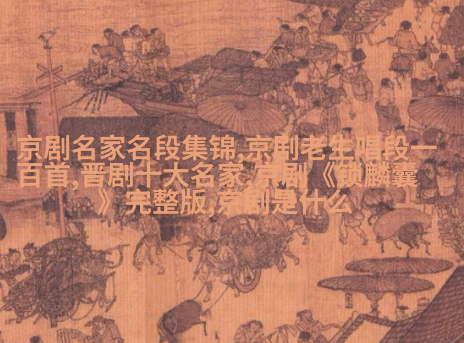 京剧名家名段集锦,京剧老生唱段一
百首,晋剧十大名家,京剧《锁麟囊
》完整版,京剧是什么